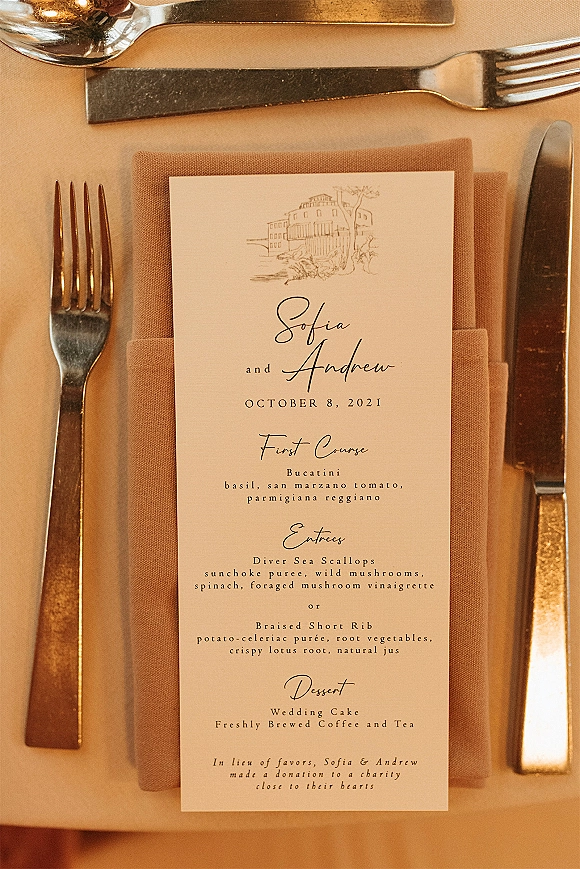 Sofia
and Andrew
OCTOBER 8, 2021
First Course
Bucatini
basil, san marzano tomato,
parmigiana reggiano
Entrees
Diver Sea Scallops
sunchoke puree, wild mushrooms,
spinach, foraged mushroom vinaigrette
or
Braised Short Rib
potato-celeriac purée, root vegetables,
crispy lotus root, natural jus
Dessert
Wedding Cake
Freshly Brewed Coffee and Tea
In lieu of favors, Sofia & Andrew
made a donation to a charity
close to their hearts